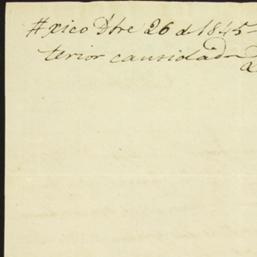 #xico Dbre 26 d 1845-
terior causidado
a